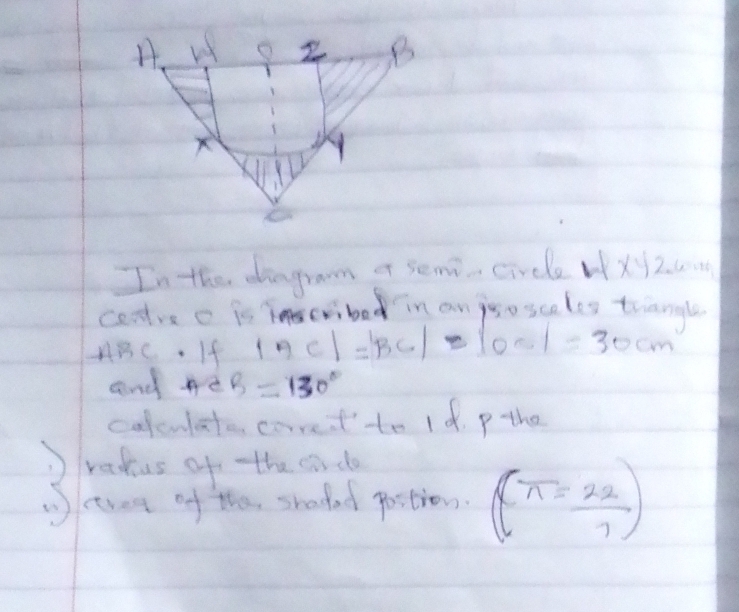 A W O Z B
X Y
C
In the diagram a semi-circle WXYZ with
centre O is inscribed in an isosceles triangle
ABC. If |AC| = |BC| = |OC| = 30cm
and ACB = 130°
calculate correct to 1 d.p the
i) radius of the circle
ii) area of the shaded portion. (π = 22/7)